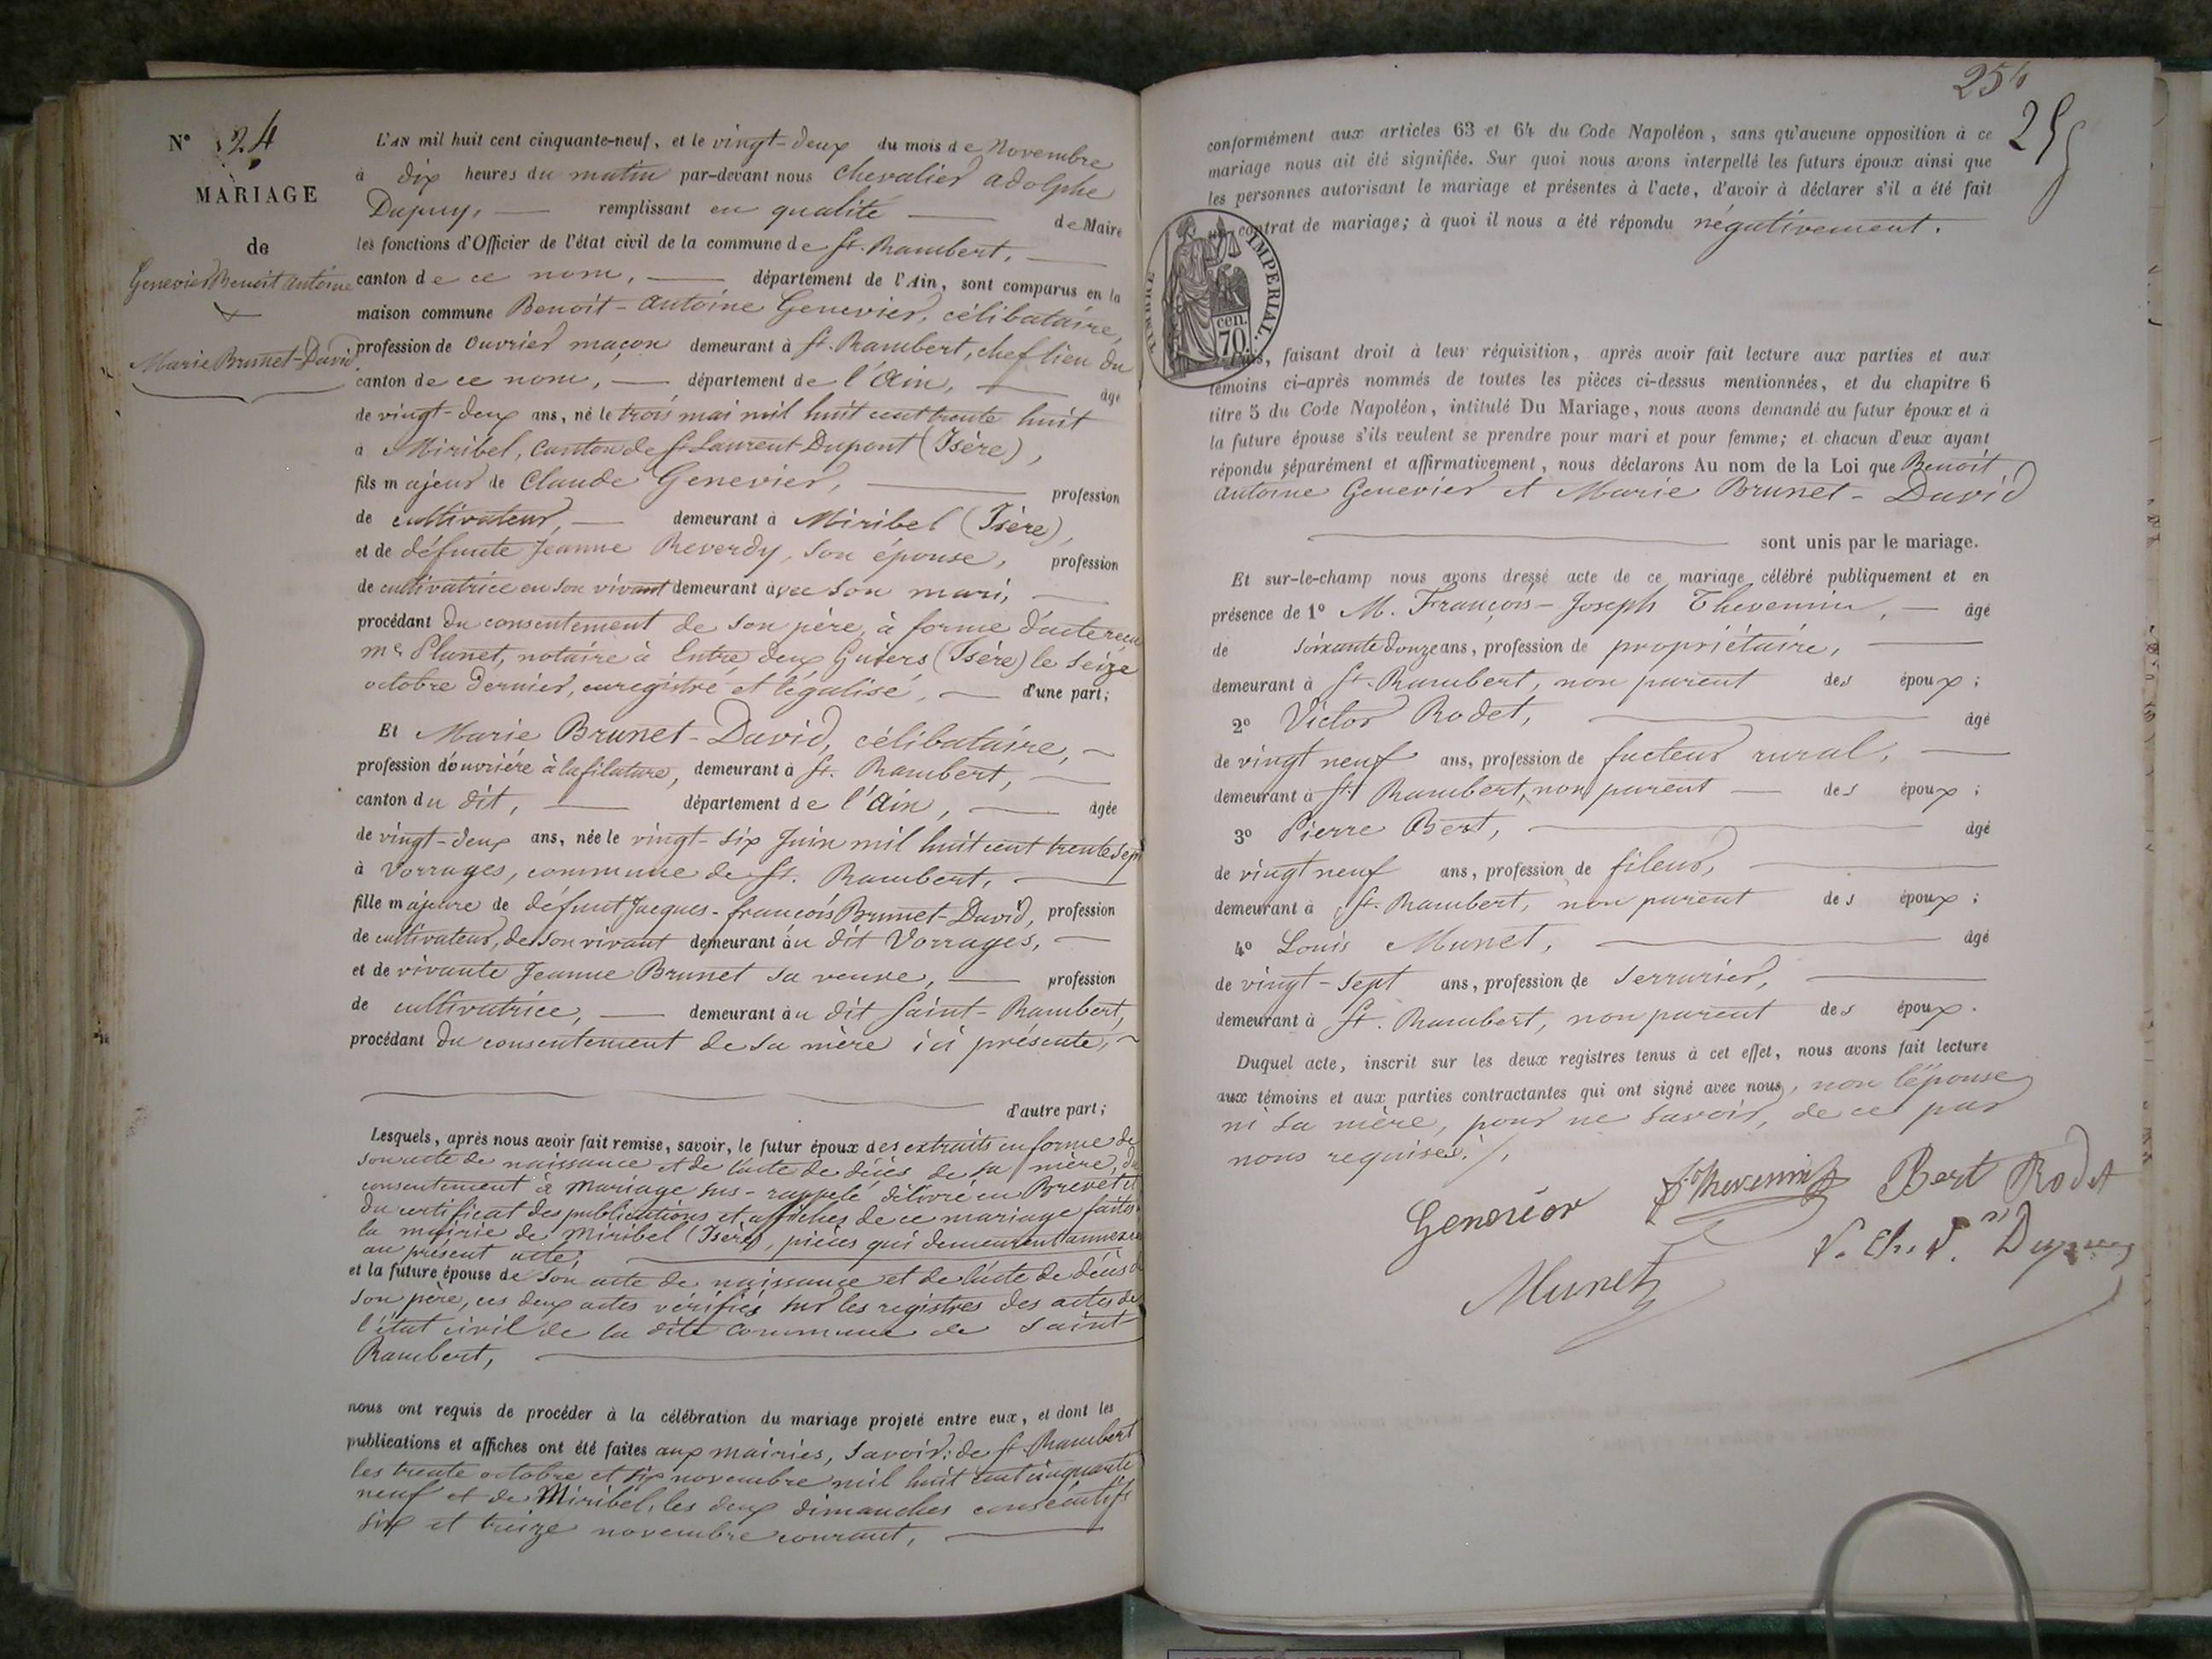 N° 24
MARIAGE
de
Genevier Benoit Antoine
Marie Brunet-David
L'AN mil huit cent cinquante-neuf, et le vingt-deux du mois de Novembre
à dix heures du matin par-devant nous Chevalier Adolphe
Dupuy, remplissant en qualité de Maire
les fonctions d'Officier de l'état civil de la commune de St. Rambert,
canton de ce nom, département de l'Ain, sont comparus en la
maison commune Benoit-Antoine Genevier, célibataire,
profession de ouvrier maçon demeurant à St. Rambert, chef lieu du
canton de ce nom, département de l'Ain, âgé
de vingt-deux ans, né le trois mai mil huit cent trente huit
à Miribel, canton de St Laurent-Dupont (Isère),
fils majeur de Claude Genevier, profession
de cultivateur, demeurant à Miribel (Isère),
et de défunte Jeanne Reverdy, son épouse, profession
de cultivatrice en son vivant demeurant avec son mari,
procédant du consentement de son père, à forme d'acte reçu
me Planet, notaire à Entre deux Guiers (Isère) le seize
octobre dernier, enregistré et légalisé, d'une part;
Et Marie Brunet-David, célibataire,
profession d'ouvrière à la filature, demeurant à St. Rambert,
canton du dit, département de l'Ain, âgée
de vingt-deux ans, née le vingt-six Juin mil huit cent trente sept
à Vorrages, commune de St. Rambert,
fille majeure de défunt Jacques-françois Brunet-David, profession
de cultivateur, de son vivant demeurant au dit Vorrages,
et de vivante Jeanne Brunet sa veuve, profession
de cultivatrice, demeurant au dit Saint-Rambert,
procédant du consentement de sa mère ici présente,
d'autre part;
Lesquels, après nous avoir fait remise, savoir, le futur époux des extraits en forme de
son acte de naissance et de l'acte de décès de sa mère, du
consentement à mariage sus-rappelé délivré en Brevet et
du certificat des publications et affiches de ce mariage faites
la mairie de Miribel (Isère), pièces qui demeurent annexées
au présent acte;
et la future épouse de son acte de naissance et de l'acte de décès d
son père, ces deux actes vérifiés sur les registres des actes de
l'état civil de la dite commune de Saint
Rambert,
nous ont requis de procéder à la célébration du mariage projeté entre eux, et dont les
publications et affiches ont été faites aux mairies, savoir: de St. Rambert
les trente octobre et six novembre mil huit cent cinquante
neuf et de Miribel, les deux dimanches consécutifs
six et treize novembre courant,
254
255
conformément aux articles 63 et 64 du Code Napoléon, sans qu'aucune opposition à ce
mariage nous ait été signifiée. Sur quoi nous avons interpellé les futurs époux ainsi que
les personnes autorisant le mariage et présentes à l'acte, d'avoir à déclarer s'il a été fait
contrat de mariage; à quoi il nous a été répondu négativement.
TIMBRE IMPERIAL.
cen. 70.
faisant droit à leur réquisition, après avoir fait lecture aux parties et aux
témoins ci-après nommés de toutes les pièces ci-dessus mentionnées, et du chapitre 6
titre 5 du Code Napoléon, intitulé Du Mariage, nous avons demandé au futur époux et à
la future épouse s'ils veulent se prendre pour mari et pour femme; et chacun d'eux ayant
répondu séparément et affirmativement, nous déclarons Au nom de la Loi que Benoit
Antoine Genevier et Marie Brunet-David
sont unis par le mariage.
Et sur-le-champ nous avons dressé acte de ce mariage célébré publiquement et en
présence de 1° M. François-Joseph Thevenin, âgé
de soixante douze ans, profession de propriétaire,
demeurant à St. Rambert, non parent des époux;
2° Victor Rodet, âgé
de vingt neuf ans, profession de facteur rural,
demeurant à St. Rambert, non parent des époux;
3° Pierre Bert, âgé
de vingt neuf ans, profession de fileur,
demeurant à St. Rambert, non parent des époux;
4° Louis Munet, âgé
de vingt-sept ans, profession de serrurier,
demeurant à St. Rambert, non parent des époux.
Duquel acte, inscrit sur les deux registres tenus à cet effet, nous avons fait lecture
aux témoins et aux parties contractantes qui ont signé avec nous, non l'épouse
ni sa mère, pour ne savoir, de ce par
nous requises./.
Genevier Thevenin Bert Rodet
Munet Dupuy